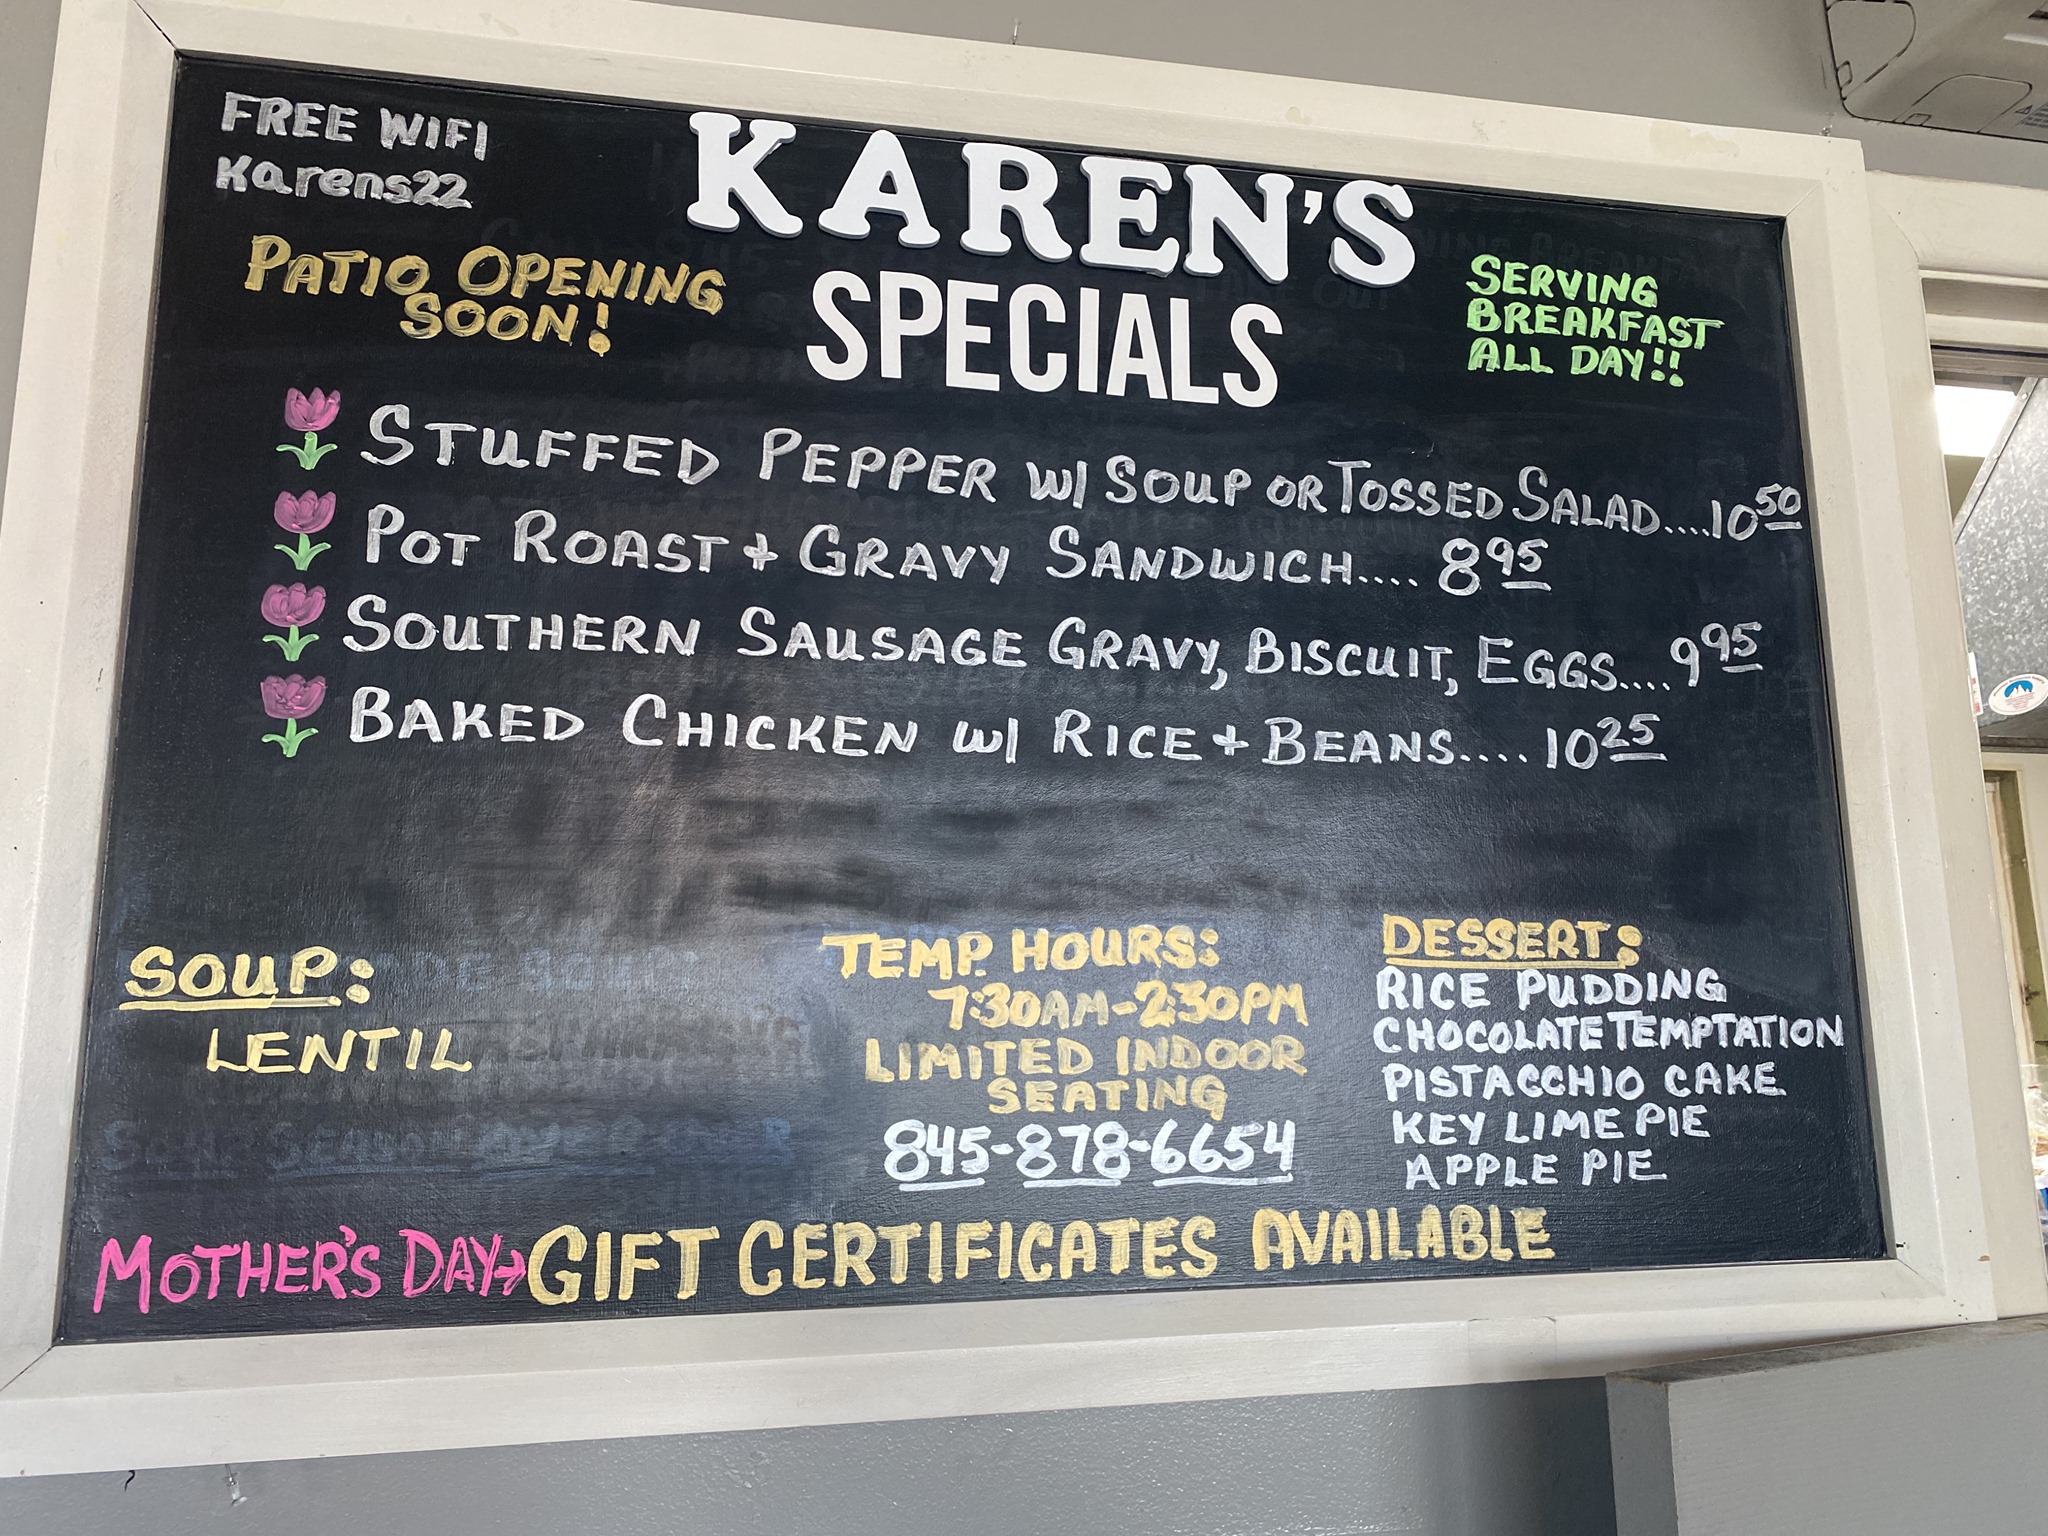 FREE WIFI
Karens22
KAREN'S
SPECIALS
PATIO OPENING
SOON!
SERVING
BREAKFAST
ALL DAY!!
STUFFED PEPPER W/ SOUP OR TOSSED SALAD....10 50
POT ROAST + GRAVY SANDWICH.... 8 95
SOUTHERN SAUSAGE GRAVY, BISCUIT, EGGS.... 9 95
BAKED CHICKEN W/ RICE + BEANS.... 10 25
SOUP:
LENTIL
TEMP. HOURS:
7:30AM-2:30PM
LIMITED INDOOR
SEATING
845-878-6654
DESSERT:
RICE PUDDING
CHOCOLATE TEMPTATION
PISTACCHIO CAKE
KEY LIME PIE
APPLE PIE
MOTHER'S DAY→GIFT CERTIFICATES AVAILABLE